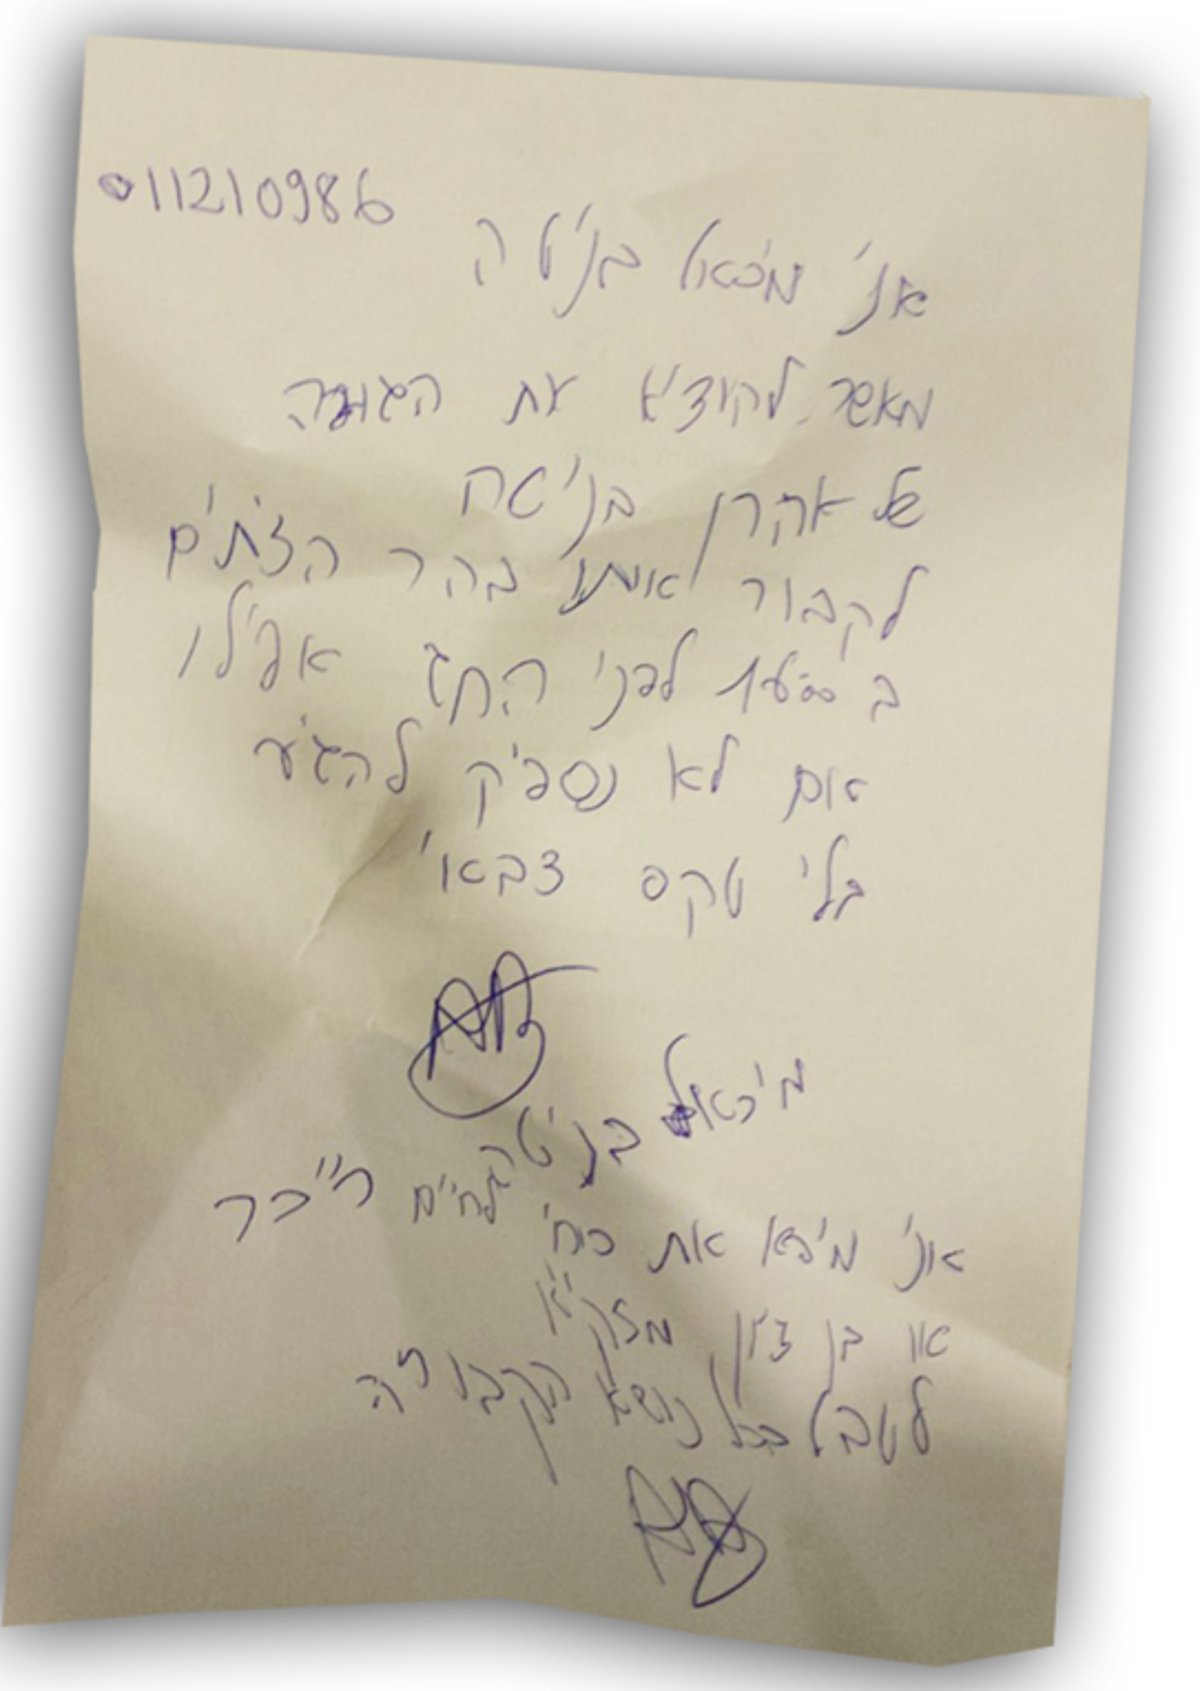 011210986
אני מיכאל בניטה
מאשר להוציא את הגופה
של אהרן בניטה
לקבור אותו בהר הזתים
ב לפני החג אפילו
אם לא נספיק להגיע
בלי טקס צבאי
מיכאל בניטה
אני מיפא את כוחי לחיים
או בן ציון
לטפל בכל נושא הקבורה